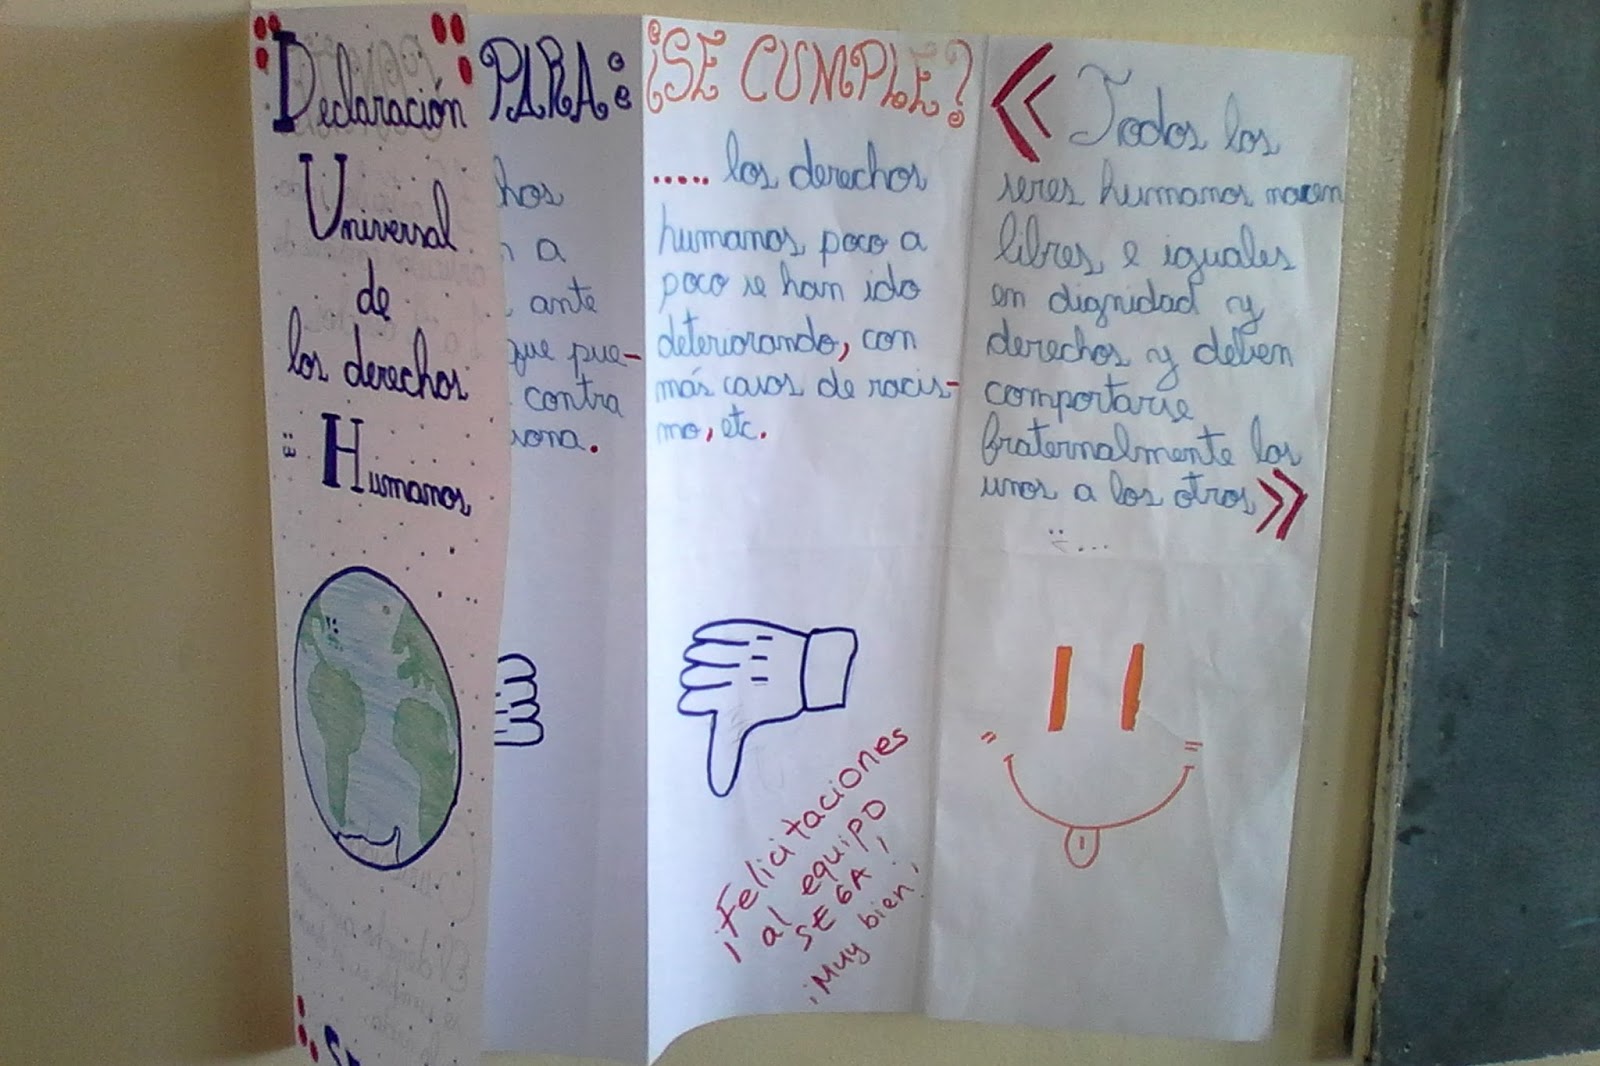 Declaración
Universal
de
los derechos
Humanos
PARA:
hos
a
ante
que pue-
contra
sona.
¿SE CUMPLE?
..... los derechos
humanos, poco a
poco se han ido
deteriorando, con
más casos de racis-
mo, etc.
¡Felicitaciones
al equipo
SEGA!
¡Muy bien!
« Todos los
seres humanos nacen
libres e iguales
en dignidad y
derechos y deben
comportarse
fraternalmente los
unos a los otros »